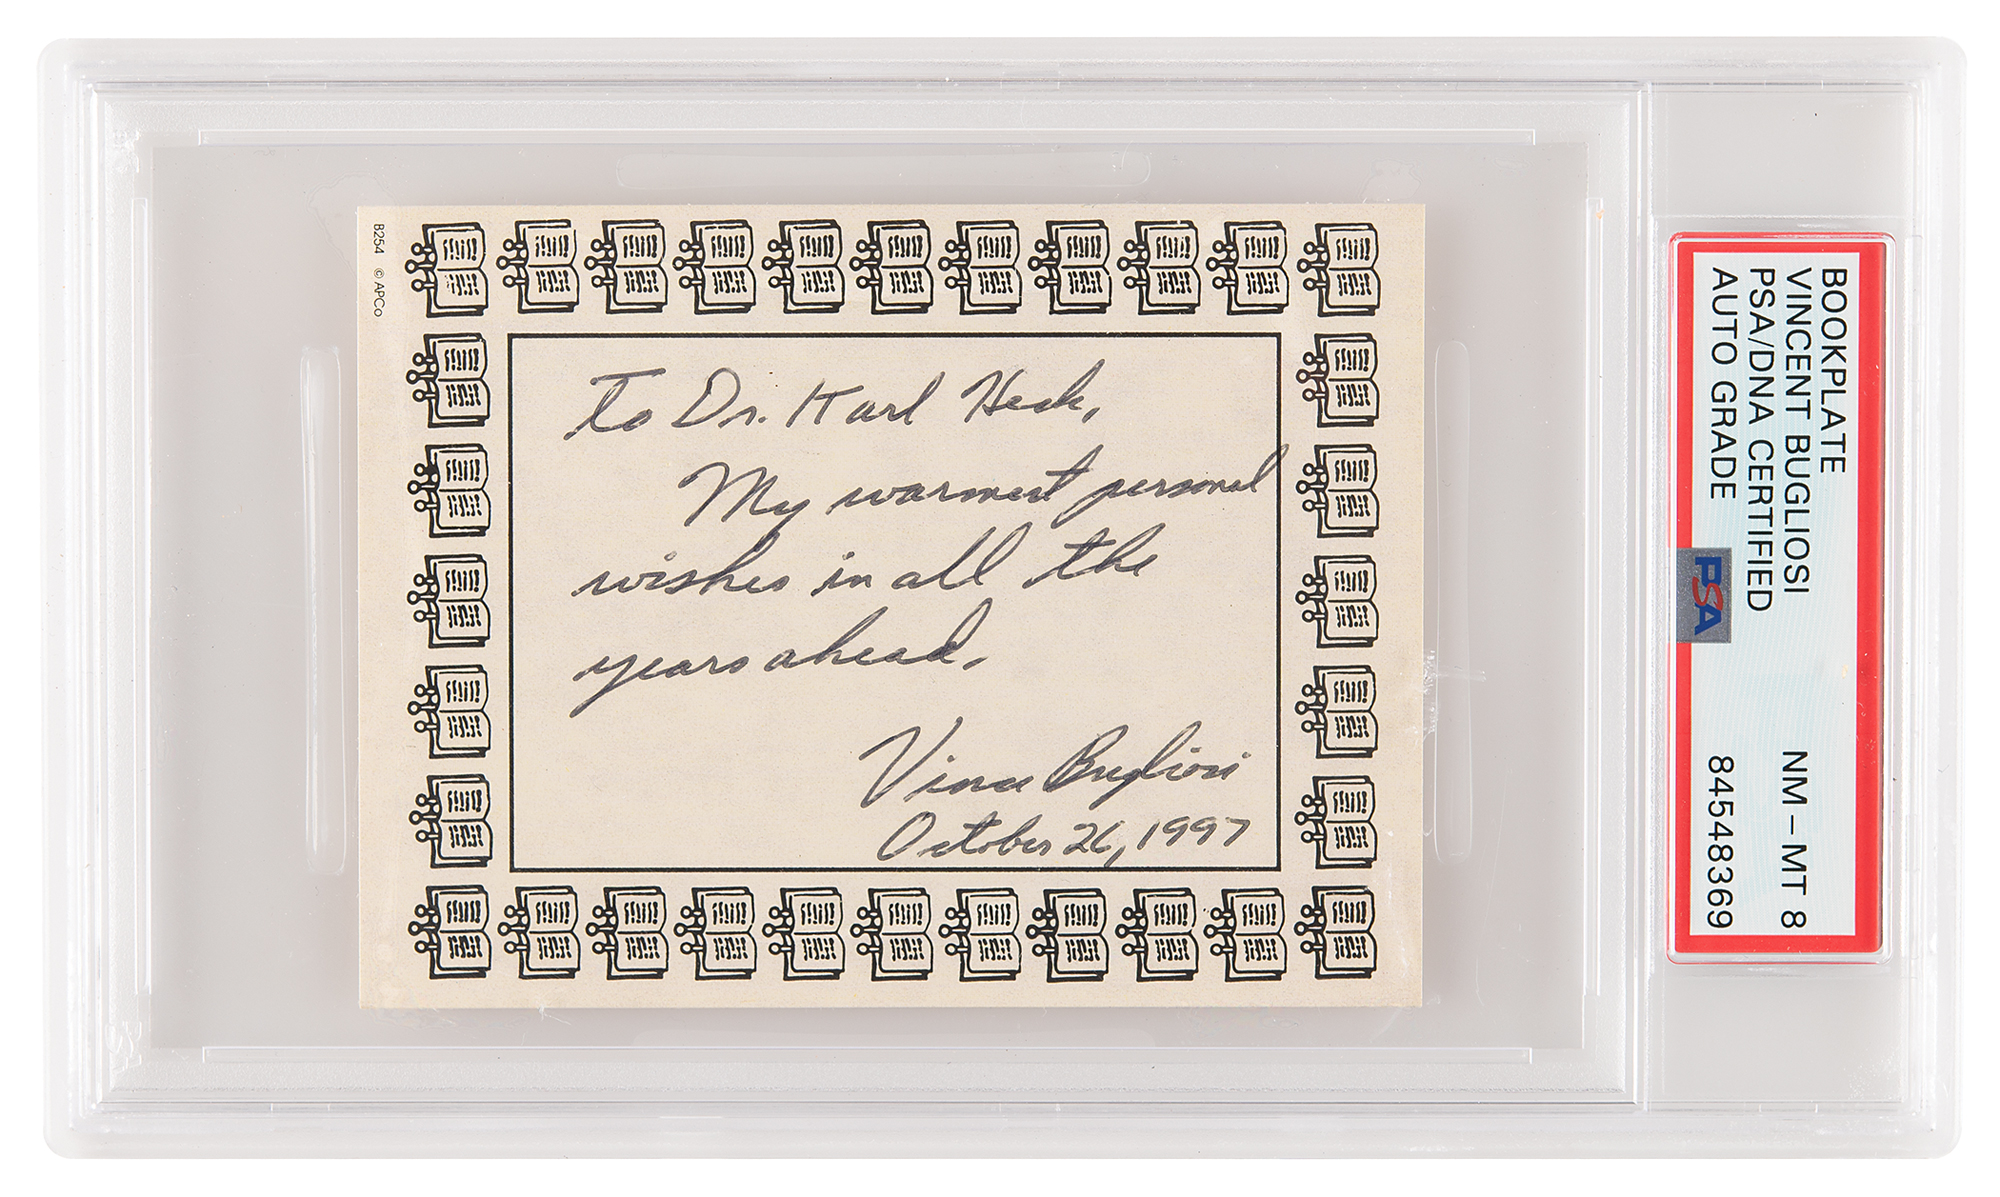 B254 © APCo
To Dr. Karl Heck,
My warmest personal
wishes in all the
years ahead.
Vince Bugliosi
October 26, 1997
BOOKPLATE
VINCENT BUGLIOSI NM-MT 8
PSA/DNA CERTIFIED
AUTO GRADE 84548369
PSA